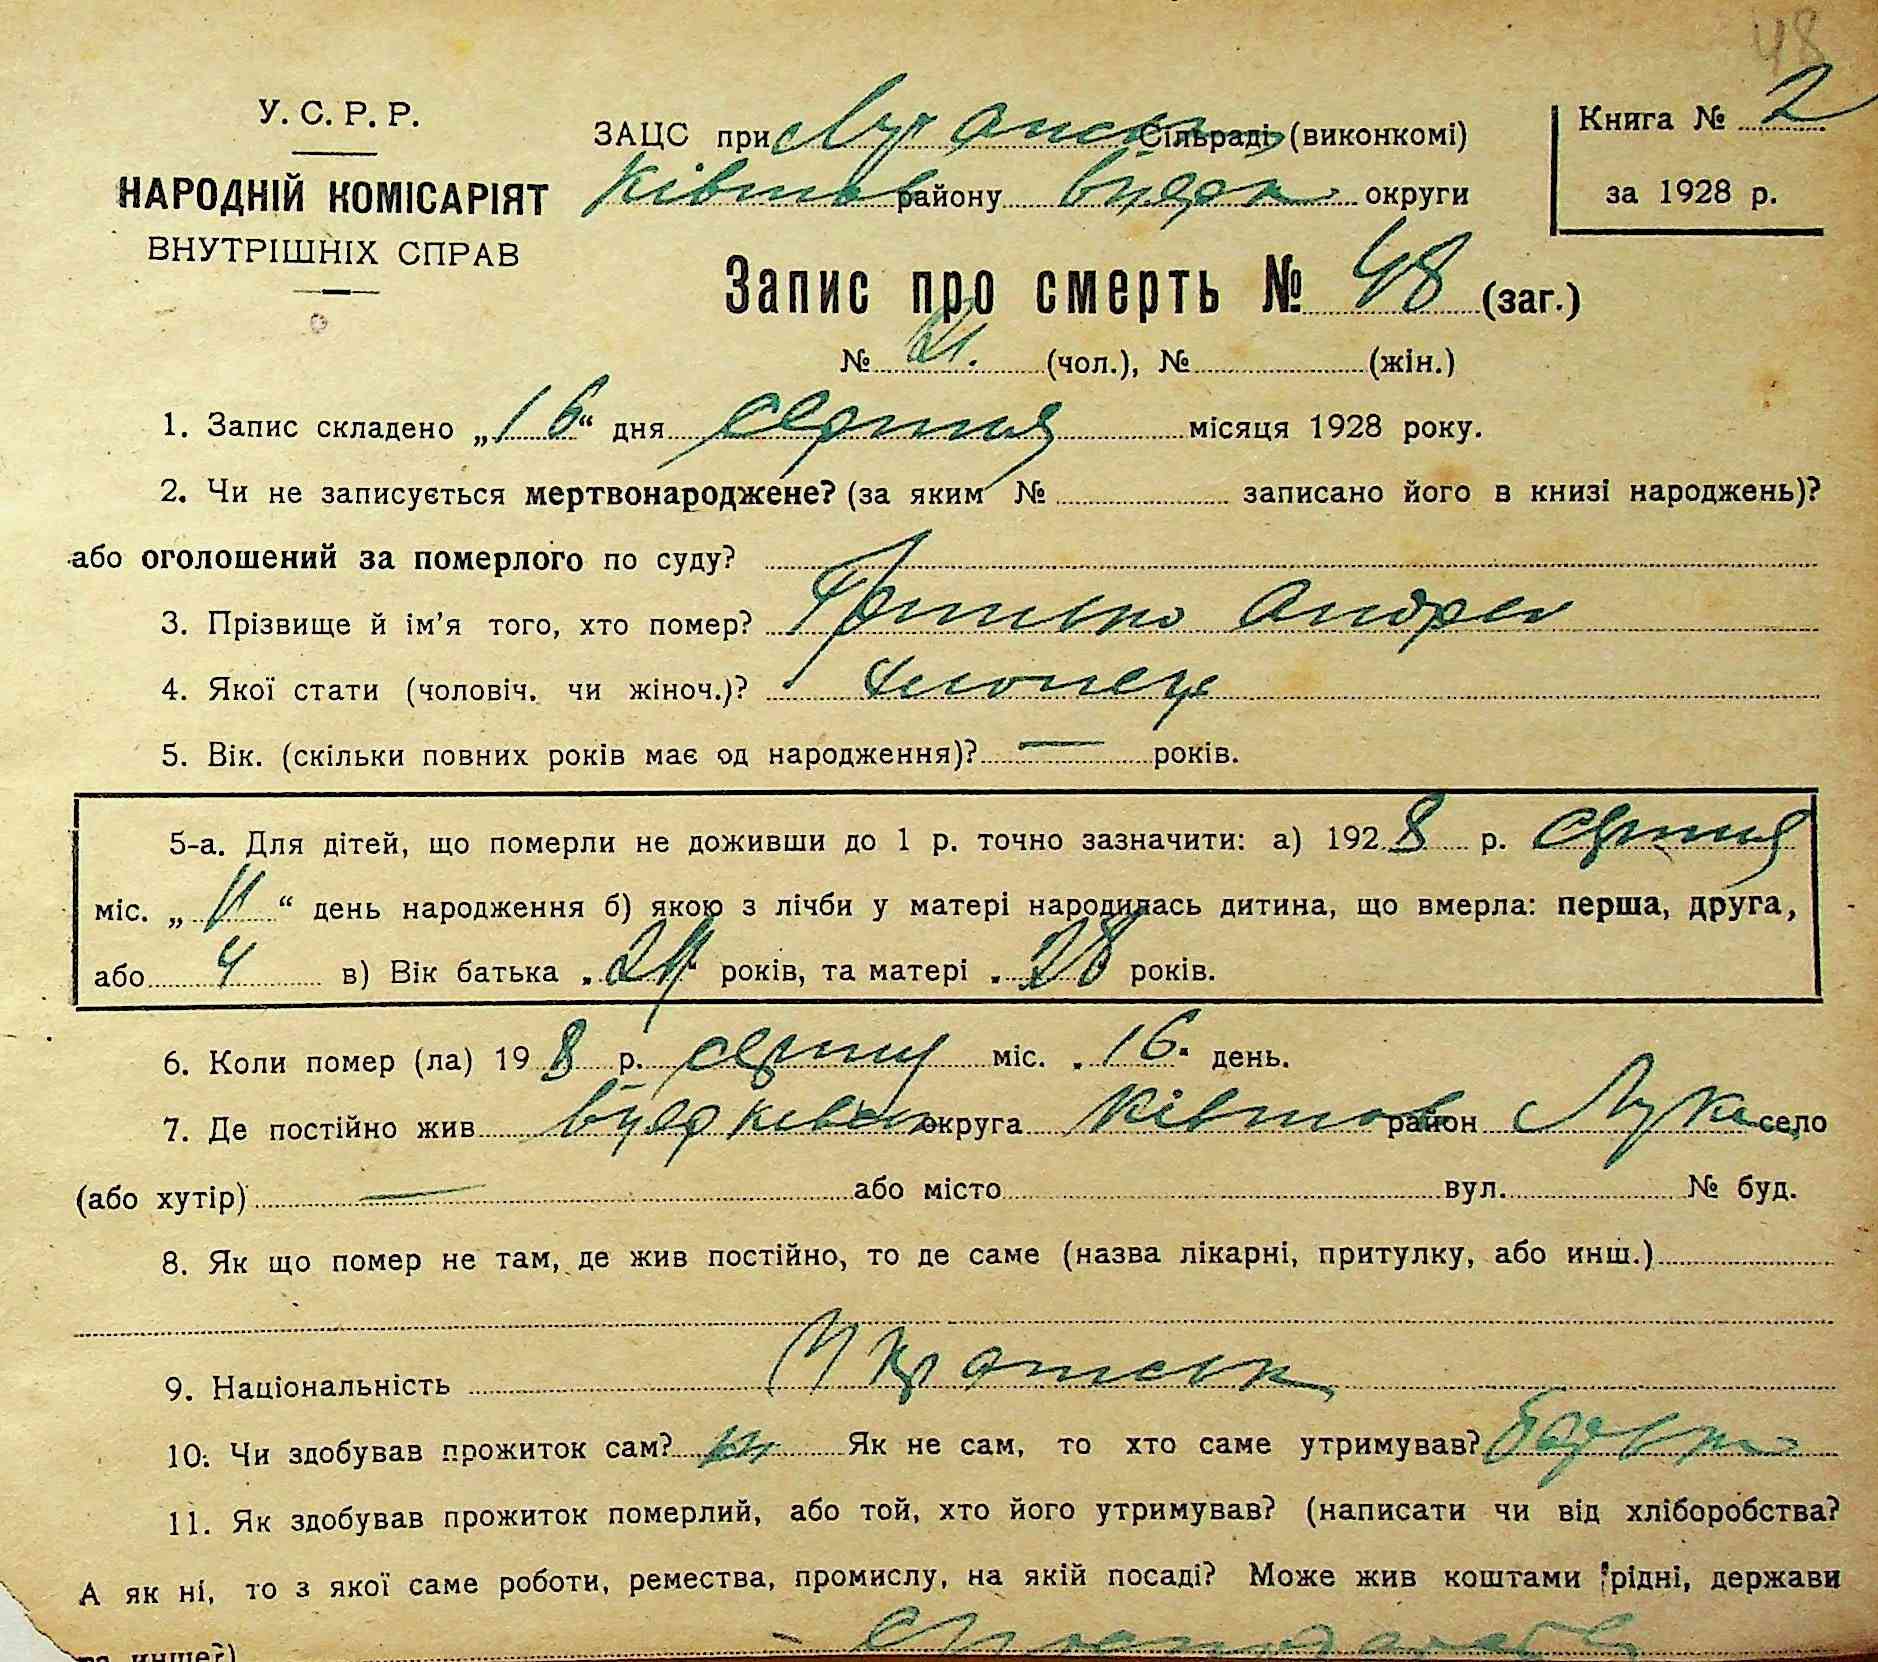 48
У. С. Р. Р.
НАРОДНІЙ КОМІСАРІЯТ
ВНУТРІШНІХ СПРАВ
ЗАЦС при Сільраді (виконкомі)
району округи
Книга № 2
за 1928 р.
Запис про смерть № 48 (заг.)
№ 21. (чол.), № (жін.)
1. Запис складено „16“ дня серпня місяця 1928 року.
2. Чи не записується мертвонароджене? (за яким № записано його в книзі народжень)?
або оголошений за померлого по суду?
3. Прізвище й ім’я того, хто помер? Андрей
4. Якої стати (чоловіч. чи жіноч.)? хлопець
5. Вік. (скільки повних років має од народження)? — років.
5-а. Для дітей, що померли не доживши до 1 р. точно зазначити: а) 1928 р. серпня
міс. „11“ день народження б) якою з лічби у матері народилась дитина, що вмерла: перша, друга,
або 4 в) Вік батька років, та матері „28“ років.
6. Коли помер (ла) 19 8 р. серпня міс. „16“ день.
7. Де постійно жив округа район Лука село
(або хутір) — або місто вул. № буд.
8. Як що помер не там, де жив постійно, то де саме (назва лікарні, притулку, або инш.)
9. Національність
10. Чи здобував прожиток сам? ні Як не сам, то хто саме утримував? батько
11. Як здобував прожиток померлий, або той, хто його утримував? (написати чи від хліборобства?
А як ні, то з якої саме роботи, ремества, промислу, на якій посаді? Може жив коштами рідні, держави
та инше?)